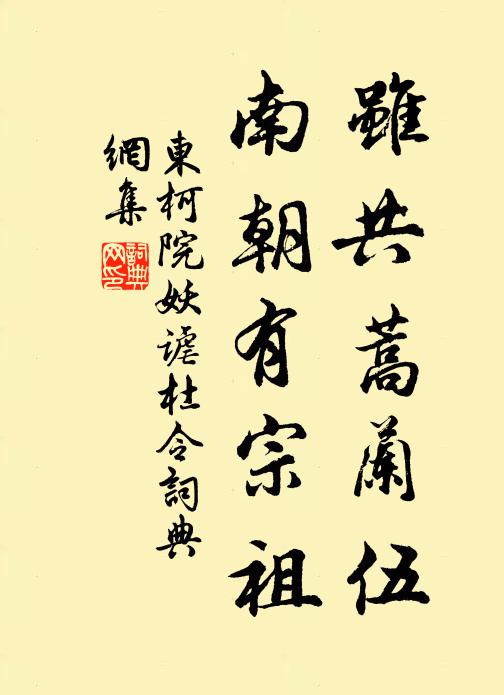 雖共蒿蘭伍
南朝有宗祖
東柯院妖謔杜令詞典
網集
詞典网印